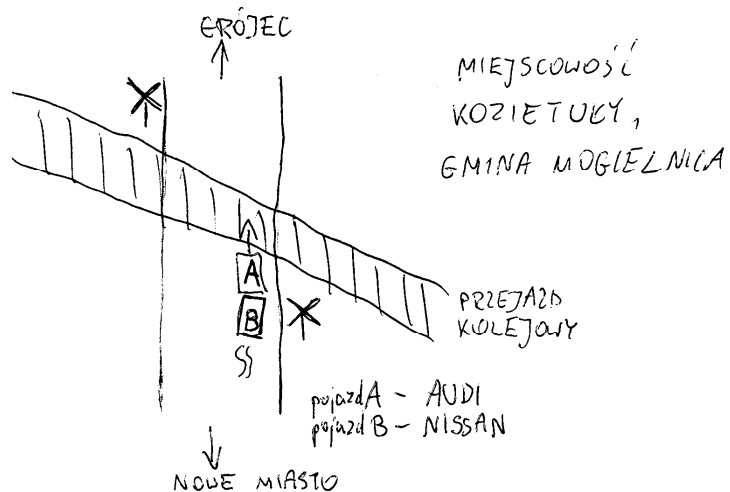 GRÓJEC
MIEJSCOWOŚĆ
KOZIETUŁY,
GMINA MOGIELNICA
A
B
PRZEJAZD
KOLEJOWY
pojazd A - AUDI
pojazd B - NISSAN
NOWE MIASTO